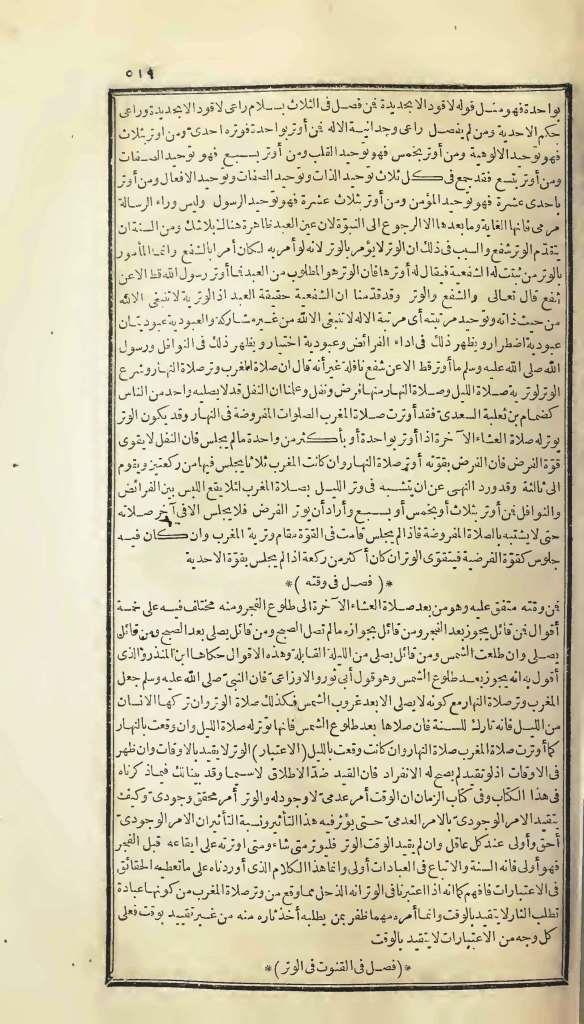 ٥١٩
بواحدة فهو مثل قوله لا قود الا بحديدة فمن فصل فى الثلاث بسلام راعى لا قود الا بحديدة وراعى
حكم الاحدية ومن لم يفصل راعى وحدانية الاله فمن أوتر بواحدة فوتره احدى ومن اوتر بثلاث
فهو توحيد الالوهية ومن أوتر بخمس فهو توحيد القلب ومن أوتر بسبع فهو توحيد الصفات
ومن أوتر بتسع فقد جمع فى كل ثلاث توحيد الذات وتوحيد الصفات وتوحيد الافعال ومن أوتر
باحدى عشرة فهو توحيد المؤمن ومن أوتر بثلاث عشرة فهو توحيد الرسول وليس وراء الرسالة
مرمى فانها الغاية وما بعدها الا الرجوع الى النبوّة لان عين العبد ظاهرة هنالك بلا شك ومن السنة ان
يتقدّم الوتر شفع والسبب فى ذلك ان الوتر لا يؤمر بالوتر لانه لو أمر به لكان أمرا بالشفع وانما المأمور
بالوتر من ثبتت له الشفعية فيقال له أوترها فان الوتر هو المطلوب من العبد فما أوتر رسول الله قط الا عن
شفع قال تعالى والشفع والوتر وقد قدّمنا ان الشفعية حقيقة العبد اذ الوترية لا تنبغى الا لله
من حيث ذاته وتوحيد مرتبته أى مرتبة الاله لا تنبغى الا لله من غير مشاركة والعبودية عبوديتان
عبودية اضطرار ويظهر ذلك فى اداء الفرائض وعبودية اختيار ويظهر ذلك فى النوافل ورسول
الله صلى الله عليه وسلم ما أوتر قط الا عن شفع نافلة غير أنه قال ان صلاة المغرب وتر صلاة النهار وشرع
الوتر لوترية صلاة الليل وصلاة النهار منها فرض ونفل وعلمنا ان النفل قد لا يصليه واحد من الناس
كضمام بن ثعلبة السعدى فقد أوترت صلاة المغرب الصلوات المفروضة فى النهار وقد يكون الوتر
يوتر له صلاة العشاء الآخرة اذا أوتر بواحدة أو بأكثر من واحدة ما لم يجلس فان النفل لا يقوى
قوّة الفرض فان الفرض بقوّته أوتر صلاة النهار وان كانت المغرب ثلاثا يجلس فيها من ركعتين ويقوم
الى ثالثة وقد ورد النهى عن ان يتشبه فى وتر الليل بصلاة المغرب لئلا يقع اللبس بين الفرائض
والنوافل فمن أوتر بثلاث أو بخمس أو بسبع وأراد أن يوتر الفرض فلا يجلس الا فى آخر صلاته
حتى لا يشتبه بالصلاة المفروضة فاذا لم يجلس قامت فى القوّة مقام وترية المغرب وان كان فيه
جلوس كقوّة الفرضية فيتقوى الوتر ان كان أكثر من ركعة اذا لم يجلس بقوّة الاحدية
*( فصل فى وقته )*
فمن وقته متفق عليه وهو من بعد صلاة العشاء الآخرة الى طلوع الفجر ومنه مختلف فيه على خمسة
أقوال فمن قائل يجوز بعد الفجر ومن قائل بجوازه ما لم تصل الصبح ومن قائل يصلى بعد الصبح ومن قائل
يصلى وان طلعت الشمس ومن قائل يصلى من الليلة القابلة وهذه الاقوال حكاها ابن المنذر والذى
أقول به انه يجوز بعد طلوع الشمس وهو قول أبى ثور والاوزاعى فان النبى صلى الله عليه وسلم جعل
المغرب وتر صلاة النهار مع كونه لا يصلى الا بعد غروب الشمس فكذلك صلاة الوتر وان تركها الانسان
من الليل فانه تارك للسنة فان صلاها بعد طلوع الشمس فانها توتر له صلاة الليل وان وقعت بالنهار
كما أوترت صلاة المغرب صلاة النهار وان كانت وقعت بالليل (الاعتبار) الوتر لا يقيد بالاوقات وان ظهر
فى الاوقات اذ لو تقيد لم يصح له الانفراد فان القيد ضدّ الاطلاق لا سيما وقد بينا لك فيما ذكرناه
فى هذا الكتاب وفى كتاب الزمان ان الوقت أمر عدمى لا وجود له والوتر أمر محقق وجودى وكيف
يتقيد الامر الوجودى بالامر العدمى حتى يؤثر فيه هذا التأثير ونسبة التأثير ان الامر الوجودى
أحق وأولى عند كل عاقل وان لم يقيد الوقت الوتر فليوتر متى شاء ومتى اوتره على ايقاعه قبل الفجر
فهو أولى فانه السنة والاتباع فى العبادات أولى وانما هذا الكلام الذى أوردناه على ما تعطيه الحقائق
فى الاعتبارات فافهم كما انه اذا اعتبرنا فى الوتر انه الذحل مما وقع من وتر صلاة المغرب من كونها عبادة
تطلب الثار لا يتقيد بالوقت وانما أمره مهما ظفر بمن يطلبه أخذ ثاره منه من غير تقييد بوقت فعلى
كل وجه من الاعتبارات لا يتقيد بالوقت
*(فصل فى القنوت فى الوتر )*